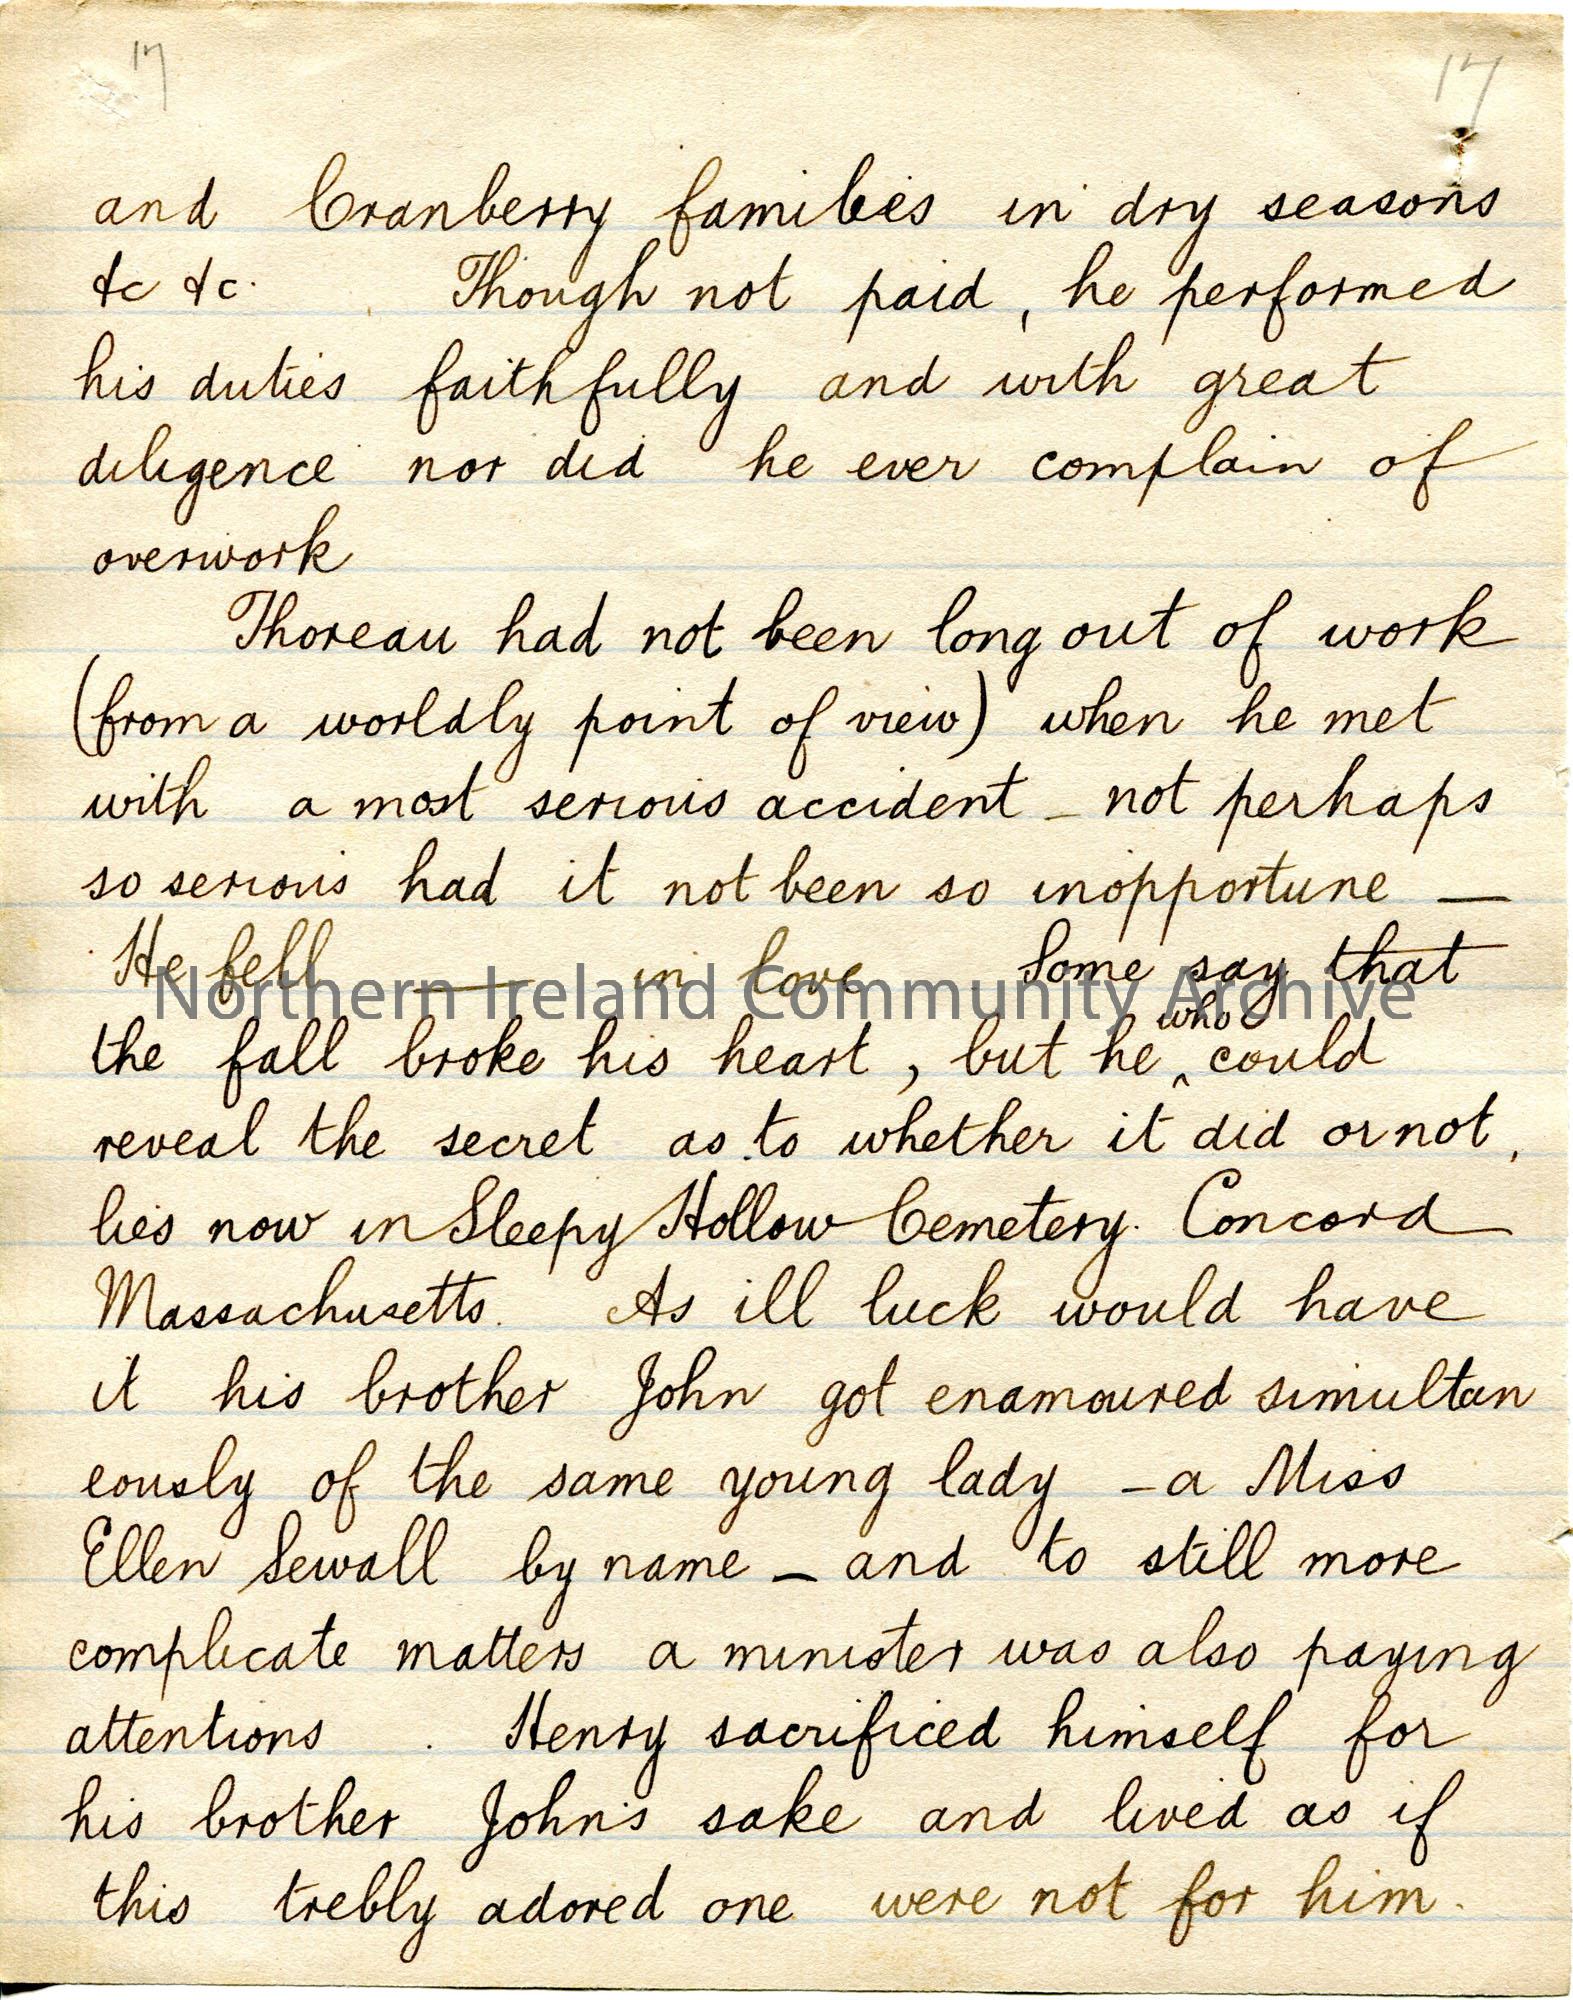 17 17
and Cranberry families in dry seasons
&c &c. Though not paid, he performed
his duties faithfully and with great
diligence nor did he ever complain of
overwork
Thoreau had not been long out of work
(from a worldly point of view) when he met
with a most serious accident – not perhaps
so serious had it not been so inopportune —
He fell —— in love Some say that
Northern Ireland Community Archive
who
the fall broke his heart, but he ‸ could
reveal the secret as to whether it did or not,
lies now in Sleepy Hollow Cemetery. Concord
Massachusetts. As ill luck would have
it his brother John got enamoured simultan
eously of the same young lady – a Miss
Ellen Sewall by name – and to still more
complicate matters a minister was also paying
attentions . Henry sacrificed himself for
his brother John's sake and lived as if
this trebly adored one were not for him.